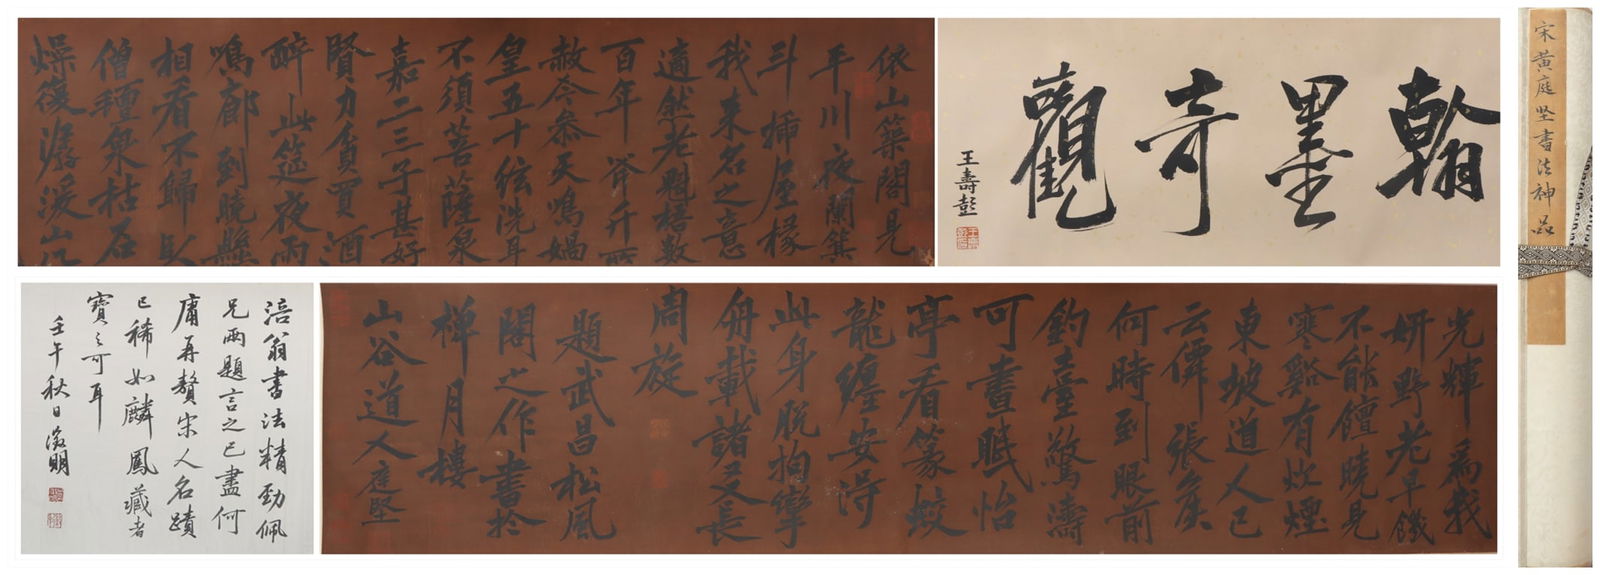 宋黄庭坚書法神品
翰墨奇觀
王壽彭
依山築閣見
平川夜闌箕
斗插屋椽
我来名之意
適然老松魁梧數
百年斧斤所
赦今參天鳴媧
皇五十弦洗耳
不須菩薩泉
嘉二三子甚好
賢力貧買酒
醉此筵夜雨
鳴廊到曉懸
相看不歸臥
僧氊泉枯石
燥復潺湲山川
光輝為我
妍野老早饑
不能饘曉見
寒谿有炊煙
東坡道人已
沉泉張侯
何時到眼前
釣臺驚濤
可晝眠怡
亭看篆蛟
龍纏安得
此身脱拘攣
舟載諸友長
周旋
題武昌松風
閣之作書於
樺月樓
山谷道人庭堅
涪翁書法精勁佩
兄兩題言之已盡何
庸再贅宋人名蹟
已稀如麟鳳藏者
寶之可耳
壬午秋日澂明